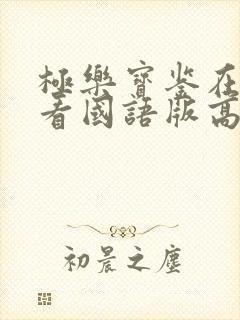 極樂寶鉴在
看國語版高
初晨之塵